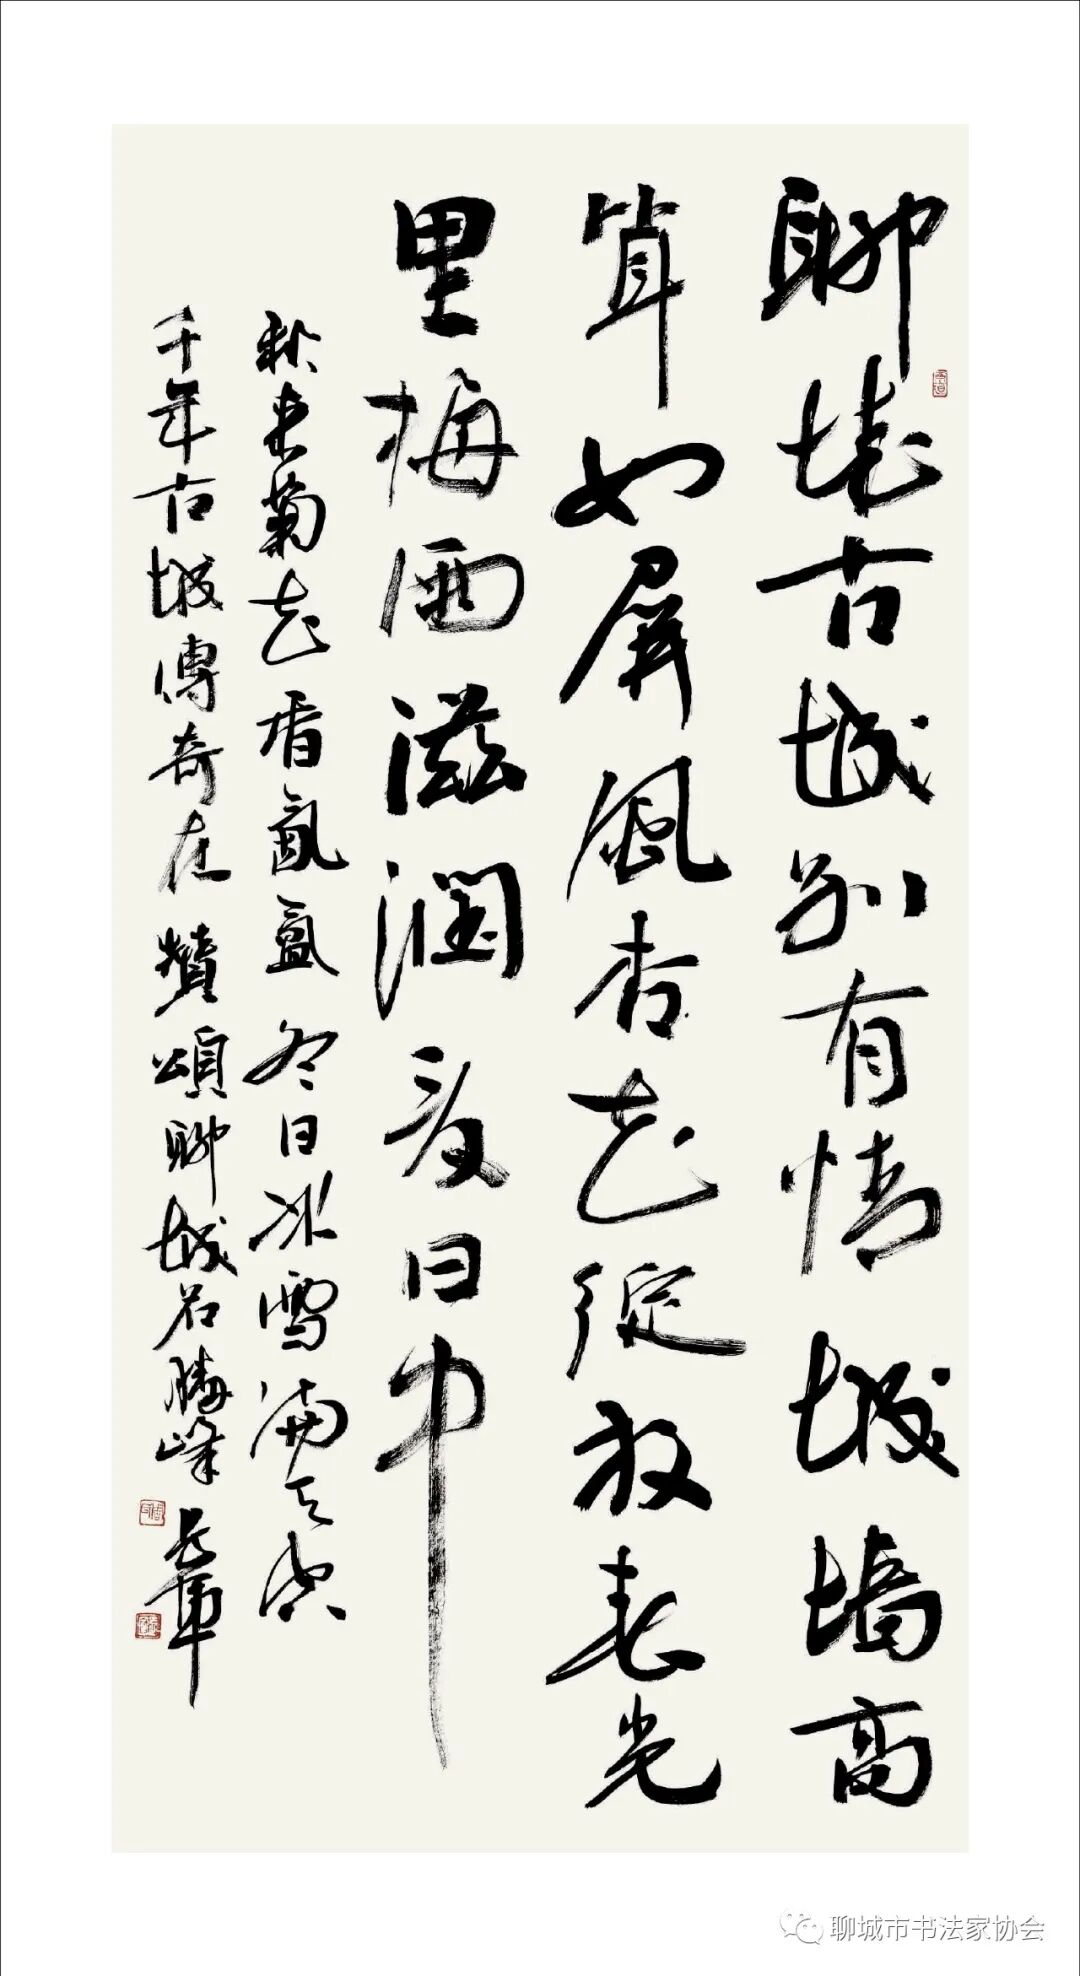 聊城古城别有情城墙高
耸如屏風杏花綻放春光
里梅雨滋润夏日中
秋来菊花香氤氲冬日冰雪满天空
千年古城傳奇在贊頌聊城名勝峰 長軍
聊城市书法家协会